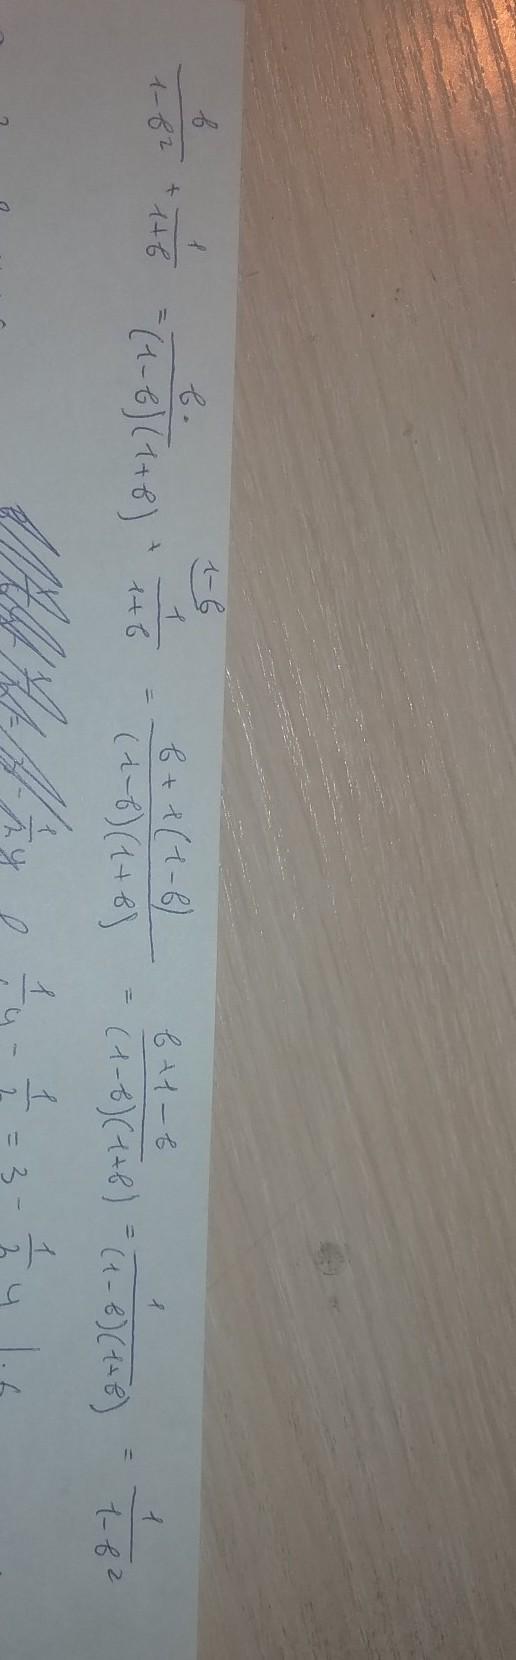 в/(1-в²) + 1/(1+в) = в·/((1-в)(1+в)) + 1/(1+в) (1-в = (в+1(1-в))/((1-в)(1+в)) = (в+1-в)/((1-в)(1+в)) = 1/((1-в)(1+в)) = 1/(1-в²)
1/2 y
1/4 - 1/2 = 3 - 1/2 y | ·6